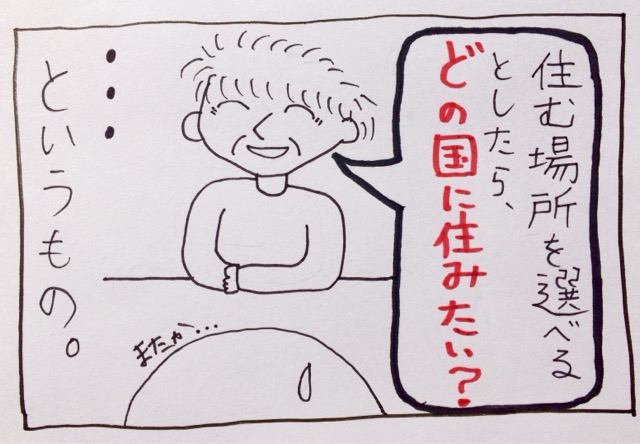 住む場所を選べる
としたら、
どの国に住みたい？
・・・
というもの。
またか...